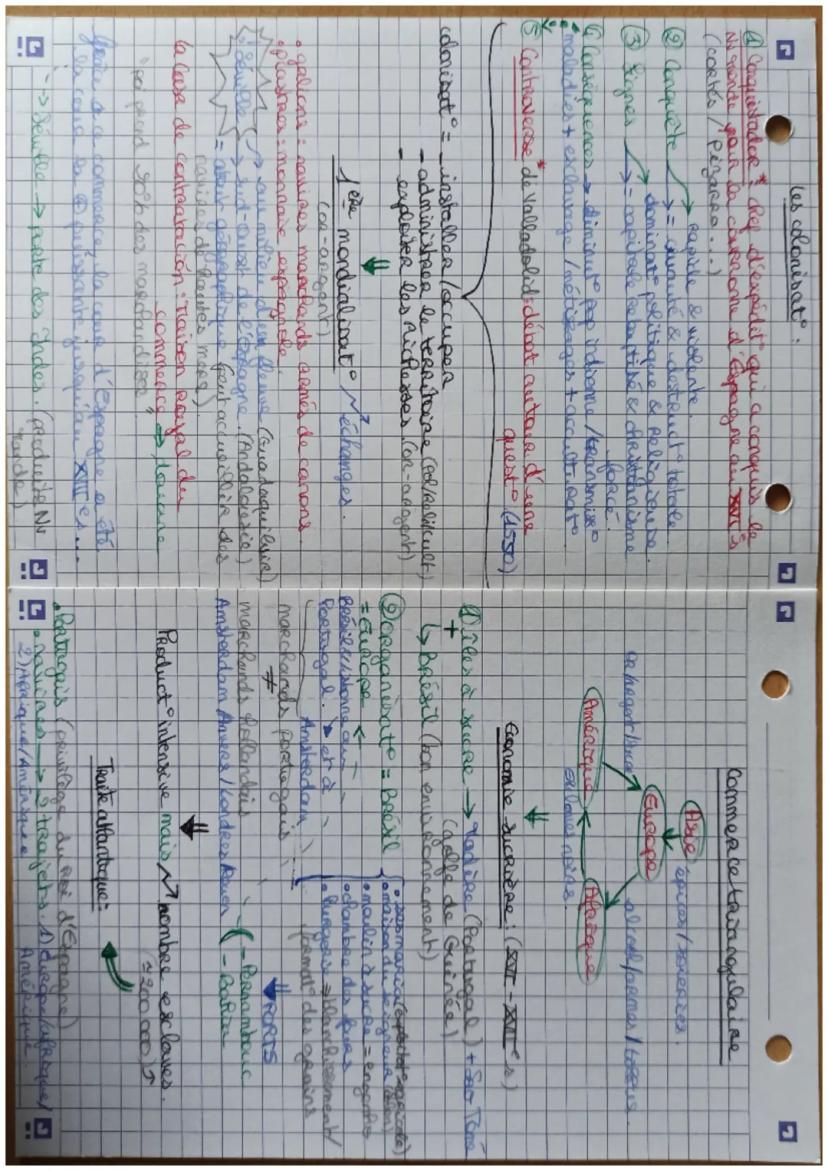 Les colonisat° :
① Conquistador* : chef d'expédit° qui a conquis le
Nv monde pour la couronne d'Espagne au XVI°s
(Cortés / Pizarro...)
② Conquête → rapide & violente
→ = cruauté & destruct° totale
③ Signes → dominat° politique & religieuse
→ = capitale rebaptisé & christianisme
forcé.
④ Conséquences → diminut° pop indienne / transmiss°
maladies + esclavage / métissages + acculturat°
⑤ Controverse* de Valladolid : débat autour d'une
quest° (1550)
colonisat° = - installer / occuper
- administrer le territoire (pol/reli/cult)
- exploiter les richesses (or-argent)
⇓
1ère mondialisat° ↗ échanges.
(or-argent)
• galions : navires marchands armés de canons
• piastres : monnaie espagnole.
Séville → au milieu d'un fleuve (Guadalquivir)
→ sud-ouest de l'Espagne (Andalousie)
= atout géographique (peut accueillir des
navires de hautes mers)
la Casa de contratación : maison royal du
commerce → douane
qui prend 20% des marchandises
Grâce à ce commerce, la cour d'Espagne a été
la cour la ⊕ puissante jusqu'au XVII°s...
→ Séville → porte des Indes. (produits Nv
monde)
Commerce triangulaire
Asie épices / soieries.
Europe
or/argent/sucre alcool / armes / tissus.
Amérique Afrique
esclaves noirs.
⇓
Economie sucrière : (XVI - XVII°s)
① îles à sucre → Madère (Portugal) + Sao Tomé
+ (Golfe de Guinée)
↳ Brésil (bon environnement)
② Organisat° = Brésil
= Europe
• maison du seigneur
• moulin à sucre = engenho
• chambre des fours
• purgerie = blanchissement/
format° des grains
Portugal. → et à
Amsterdam
marchands portugais
≠ ⇓ PORTS
marchands hollandais
Amsterdam / Anvers / Londres / Rouen
- Pernambuc
- Bahia
Product° intensive mais ↗ nombre esclaves.
⇓ (≈ 200 000) ↑
Traite atlantique :
• Portugais (privilège du roi d'Espagne)
• navires → 2 trajets. 1) Europe / Afrique /
Amérique.
2) Afrique / Amérique